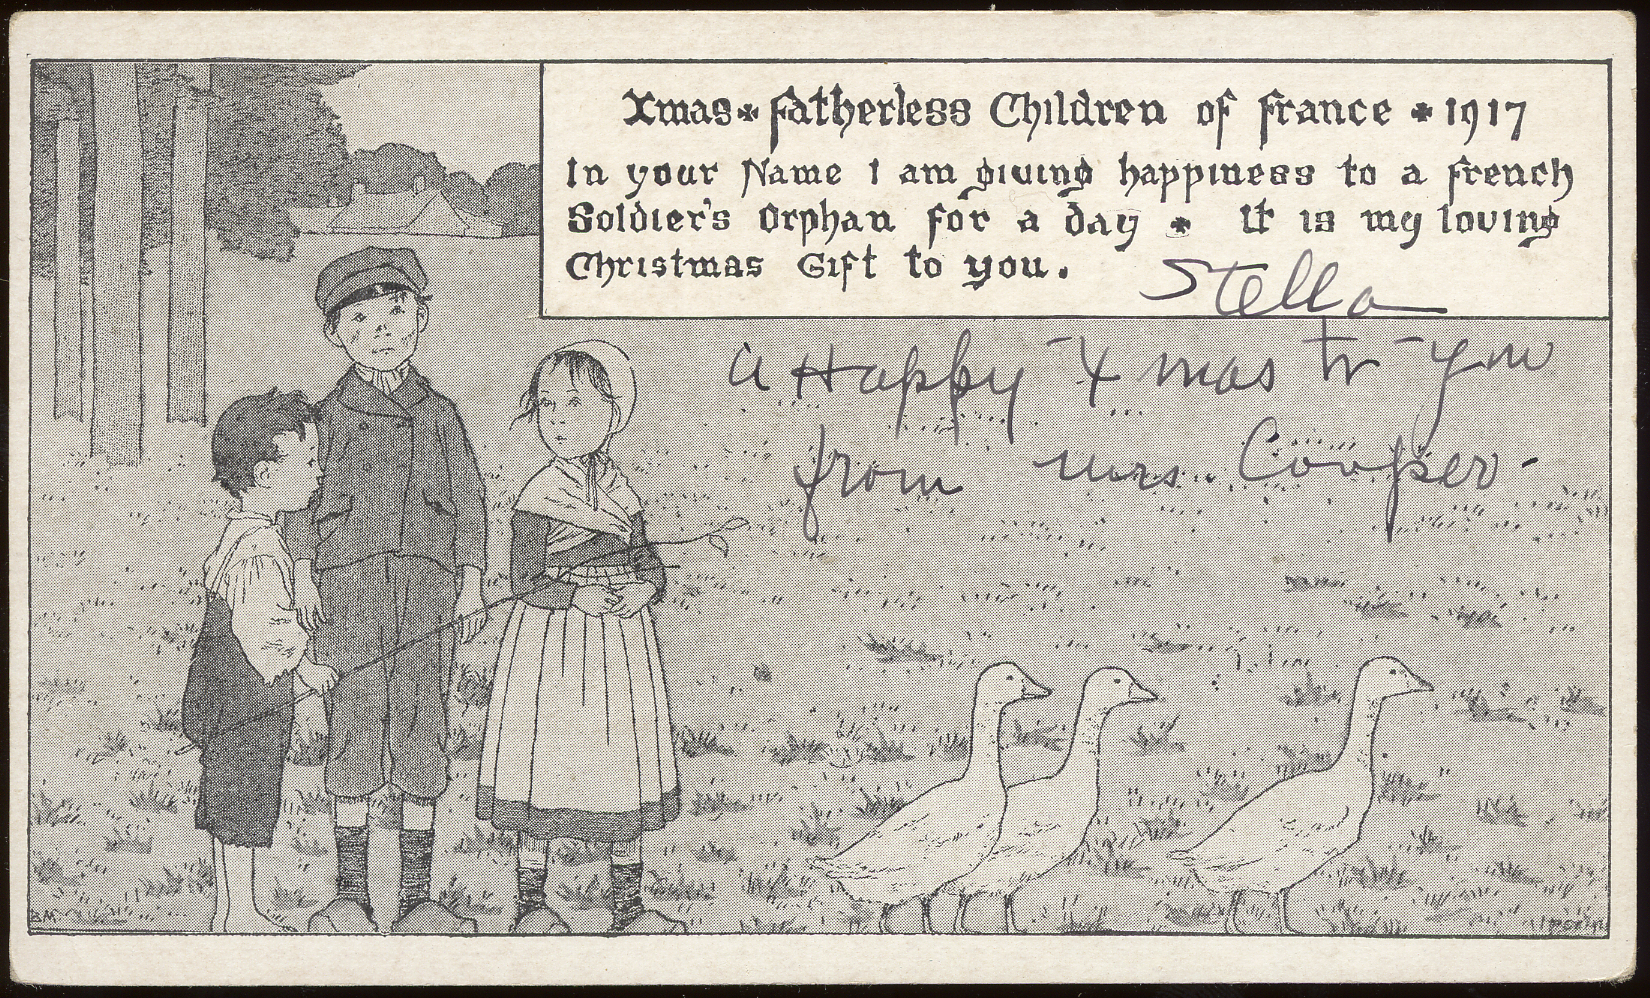 Xmas * Fatherless Children of France * 1917
In your Name I am giving happiness to a French
Soldier's Orphan for a day * It is my loving
Christmas Gift to you.
Stella
A Happy Xmas to you
from Mrs. Cooper -
BM